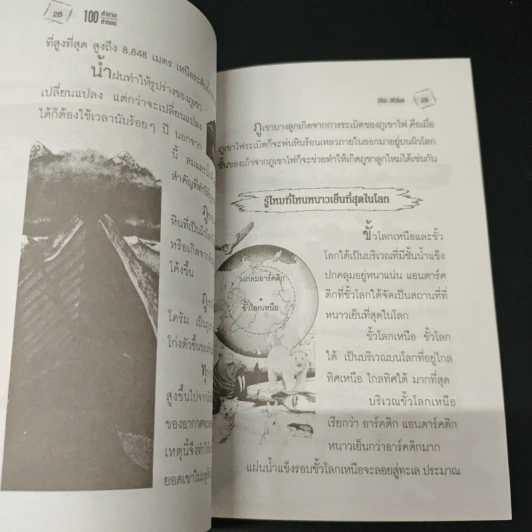 28
100 คำถาม คำตอบ
ที่สูงที่สุด สูงถึง 8,848 เมตร
น้ำฝนทำให้รูปร่างของภูเขา
เปลี่ยนแปลง แต่กว่าจะเปลี่ยนแปลง
ได้ก็ต้องใช้เวลานับร้อยๆ ปี นอกจาก
นี้
สำคัญที่ทำให้
หินที่เป็น
หรือเกิดจาก
โค้งขึ้น
โครัม เป็น
โก่งตัวขึ้นของ
สูงขึ้นไปจาก
ของอากาศจะ
เหตุนี้จึงทำให้
ยอดเขาใน
29
ภูเขาบางลูกเกิดจากการระเบิดของภูเขาไฟ คือเมื่อ
ภูเขาไฟระเบิดก็จะพ่นหินร้อนเหลวภายในออกมาอยู่บนผิวโลก
ชั้นของเถ้าจากภูเขาไฟก็จะช่วยทำให้เกิดภูเขาลูกใหม่ได้เช่นกัน
รู้ไหมที่ไหนหนาวเย็นที่สุดในโลก
ขั้วโลกเหนือและขั้ว
โลกใต้เป็นบริเวณที่มีชั้นน้ำแข็ง
ปกคลุมอยู่หนาแน่น แอนตาร์ค
ติกที่ขั้วโลกใต้จัดเป็นสถานที่ที่
หนาวเย็นที่สุดในโลก
วงกลมอาร์คติก
ขั้วโลกเหนือ
ขั้วโลกเหนือ ขั้วโลก
ใต้ เป็นบริเวณบนโลกที่อยู่ไกล
ทิศเหนือ ไกลทิศใต้ มากที่สุด
บริเวณขั้วโลกเหนือ
เรียกว่า อาร์คติก แอนตาร์คติก
หนาวเย็นกว่าอาร์คติกมาก
แผ่นน้ำแข็งรอบขั้วโลกเหนือจะลอยสู่ทะเล ประมาณ